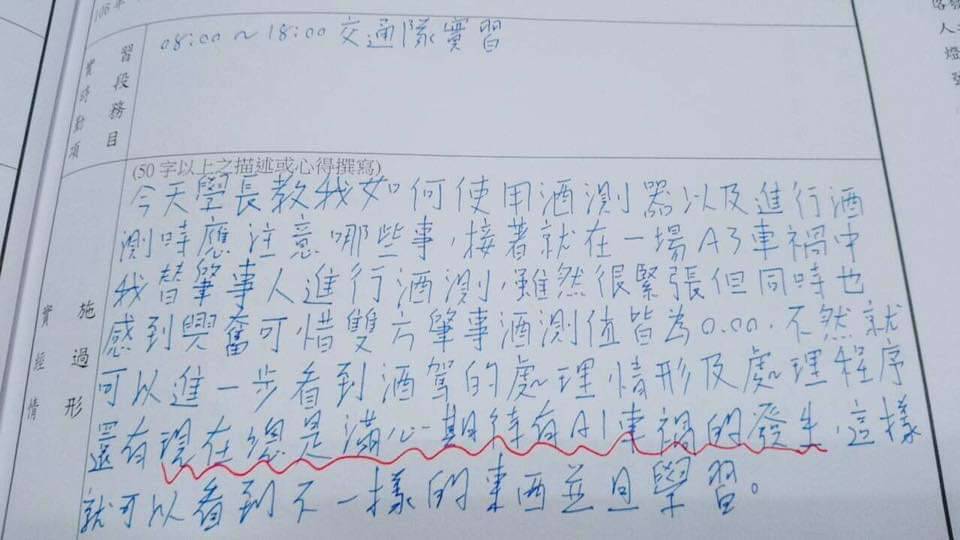 106年
08:00~18:00 交通隊實習
實習
時段
勤務
項目
(50字以上之描述或心得撰寫)
今天學長教我如何使用酒測器以及進行酒
測時應注意哪些事,接著就在一場A3車禍中
我替肇事人進行酒測,雖然很緊張但同時也
感到興奮可惜雙方肇事酒測值皆為0.00.不然就
可以進一步看到酒駕的處理情形及處理程序
還有現在總是滿心期待有A1車禍的發生,這樣
就可以看到不一樣的東西並且學習。
實施
經過
情形
人
燈